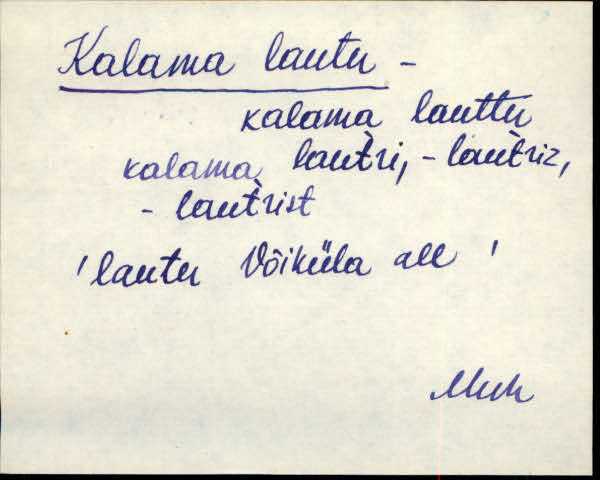 Kalama lautu -
kalama lauttu
kalama lautri, - lautriz,
- lautrist
'lautu Võiküla all'
Muh